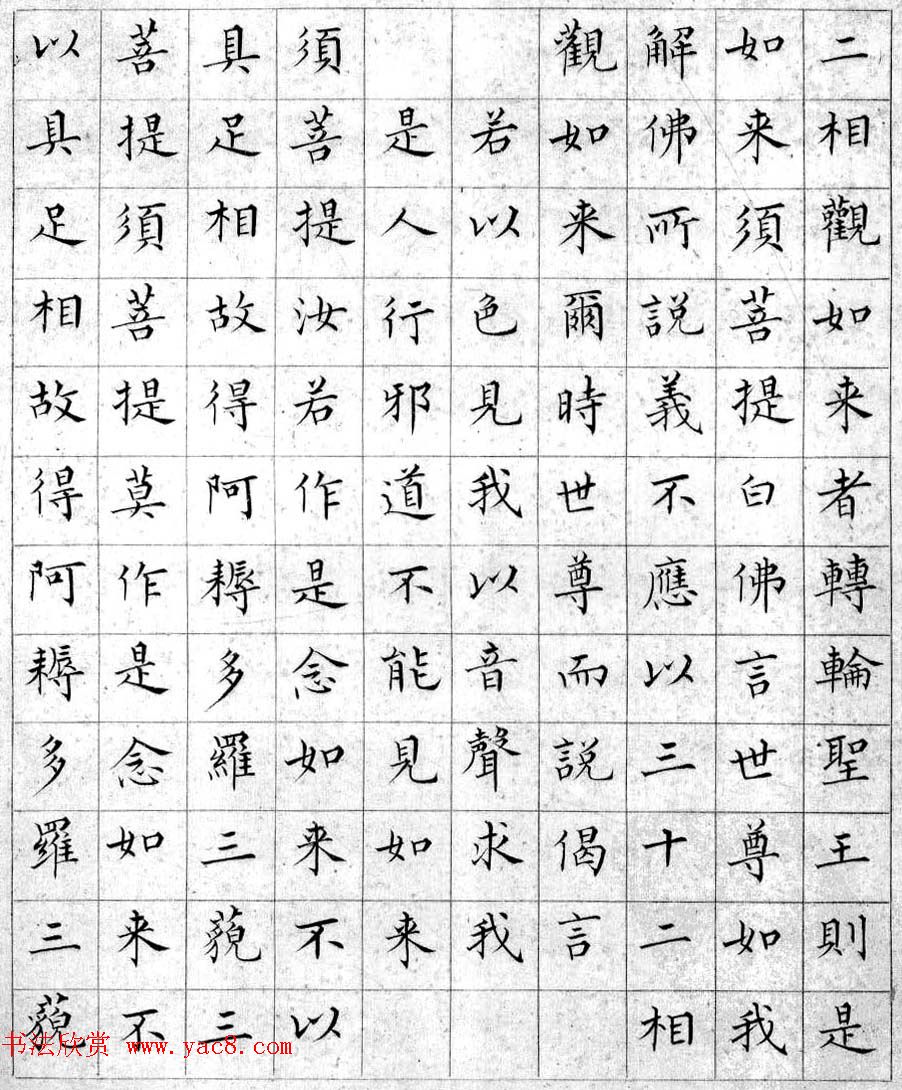 二相觀如来者轉輪聖王則是
如来須菩提白佛言世尊如我
解佛所説義不應以三十二相
觀如来爾時世尊而説偈言
若以色見我以音聲求我
是人行邪道不能見如来
須菩提汝若作是念如来不以
具足相故得阿耨多羅三藐三
菩提須菩提莫作是念如来不
以具足相故得阿耨多羅三藐
书法欣赏 www.yac8.com